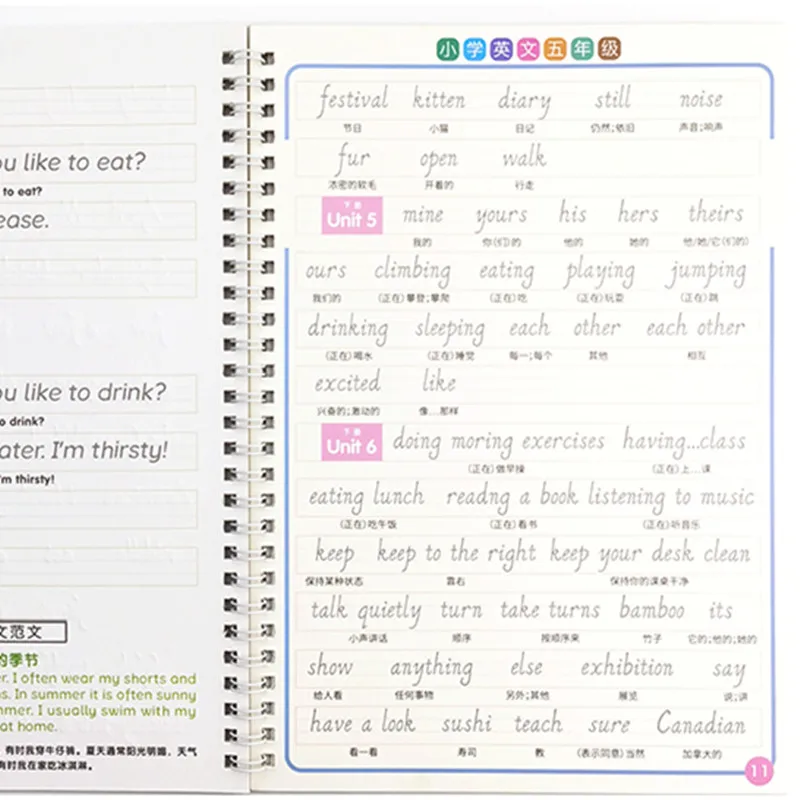 ou like to eat?
to eat?
ease.
ou like to drink?
to drink?
ater. I'm thirsty!
'm thirsty!
文范文
的季节
r. I often wear my shorts and
s. In summer it is often sunny
mmer. I usually swim with my
at home.
有时我穿牛仔裤。夏天通常阳光明媚，天气
有时我在家吃冰淇淋。
小学英文五年级
festival kitten diary still noise
节日 小猫 日记 仍然;依旧 声音;响声
fur open walk
浓密的软毛 开着的 行走
下册
Unit 5 mine yours his hers theirs
我的 你(们)的 他的 她的 他/她/它(们的)
ours climbing eating playing jumping
我们的 (正在)攀登;攀爬 (正在)吃 (正在)玩耍 (正在)跳
drinking sleeping each other each other
(正在)喝水 (正在)睡觉 每一;每个 其他 相互
excited like
兴奋的;激动的 像...那样
下册
Unit 6 doing moring exercises having...class
(正在)做早操 (正在)上...课
eating lunch readng a book listening to music
(正在)吃午饭 (正在)看书 (正在)听音乐
keep keep to the right keep your desk clean
保持某种状态 靠右 保持你的课桌干净
talk quietly turn take turns bamboo its
小声讲话 顺序 按顺序来 竹子 它的;他的;她的
show anything else exhibition say
给人看 任何事物 另外;其他 展览 说;讲
have a look sushi teach sure Canadian
看一看 寿司 教 (表示同意)当然 加拿大的
11